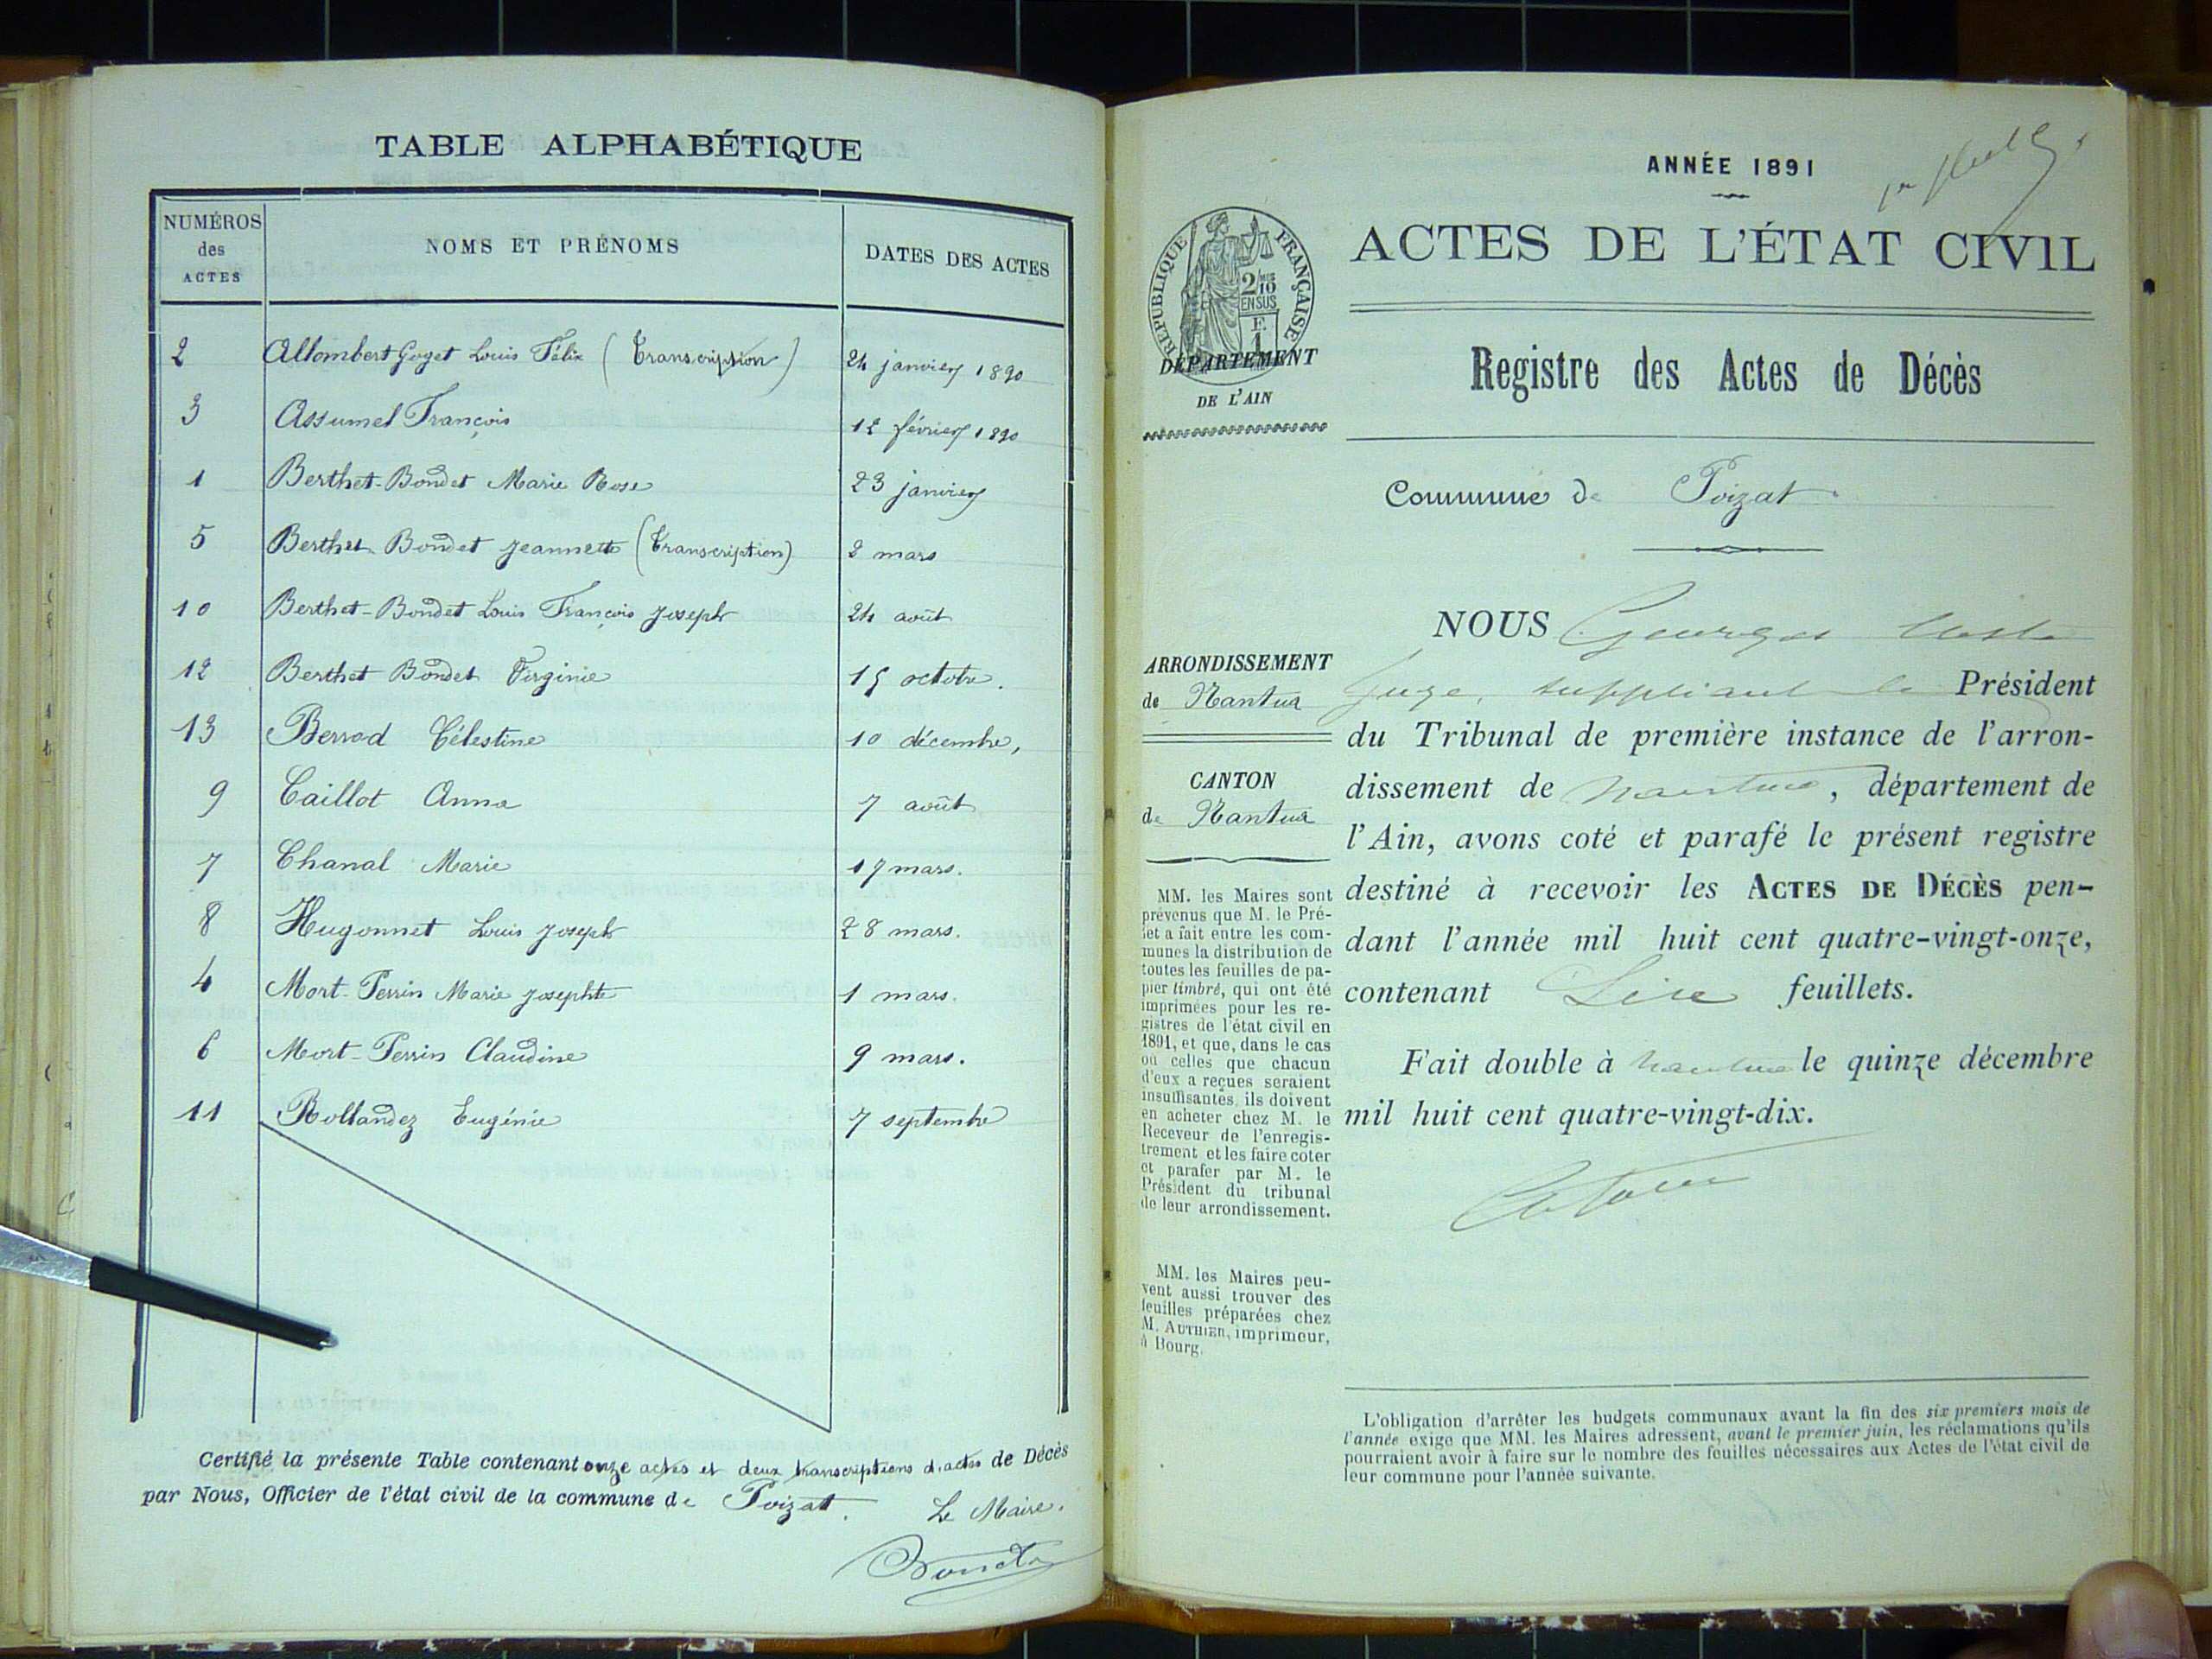 TABLE ALPHABÉTIQUE
NUMÉROS des ACTES
NOMS ET PRÉNOMS
DATES DES ACTES
2 Allombert Goget Louis Félix (Transcription) 24 janvier 1890
3 Assumel François 12 février 1890
1 Berthet-Bondet Marie Rose 23 janvier
5 Berthet-Bondet Jeannette (Transcription) 2 mars
10 Berthet-Bondet Louis François Joseph 24 août
12 Berthet Bondet Virginie 15 octobre.
13 Berrod Célestine 10 décembre,
9 Caillot Anna 7 août
7 Chanal Marie 17 mars.
8 Hugonnet Louis Joseph 28 mars.
4 Mort-Perrin Marie Josephte 1 mars.
6 Mort-Perrin Claudine 9 mars.
11 Rollandez Eugénie 7 septembre
Certifié la présente Table contenant onze actes et deux transcriptions d'actes de Décès
par Nous, Officier de l'état civil de la commune de Poizat.
Le Maire.
ANNÉE 1891
RÉPUBLIQUE FRANÇAISE
2/10 EN SUS
F. 1
ACTES DE L'ÉTAT CIVIL
DÉPARTEMENT
DE L'AIN
Registre des Actes de Décès
Commune de Poizat
ARRONDISSEMENT
de Nantua
CANTON
de Nantua
MM. les Maires sont
prévenus que M. le Pré-
fet a fait entre les com-
munes la distribution de
toutes les feuilles de pa-
pier timbré, qui ont été
imprimées pour les re-
gistres de l'état civil en
1891, et que, dans le cas
où celles que chacun
d'eux a reçues seraient
insuffisantes, ils doivent
en acheter chez M. le
Receveur de l'enregis-
trement et les faire coter
et parafer par M. le
Président du tribunal
de leur arrondissement.
MM. les Maires peu-
vent aussi trouver des
feuilles préparées chez
M. AUTHIER, imprimeur,
à Bourg.
NOUS Georges
Juge, suppléant le Président
du Tribunal de première instance de l'arron-
dissement de Nantua, département de
l'Ain, avons coté et parafé le présent registre
destiné à recevoir les ACTES DE DÉCÈS pen-
dant l'année mil huit cent quatre-vingt-onze,
contenant feuillets.
Fait double à Nantua le quinze décembre
mil huit cent quatre-vingt-dix.
L'obligation d'arrêter les budgets communaux avant la fin des six premiers mois de
l'année exige que MM. les Maires adressent, avant le premier juin, les réclamations qu'ils
pourraient avoir à faire sur le nombre des feuilles nécessaires aux Actes de l'état civil de
leur commune pour l'année suivante.